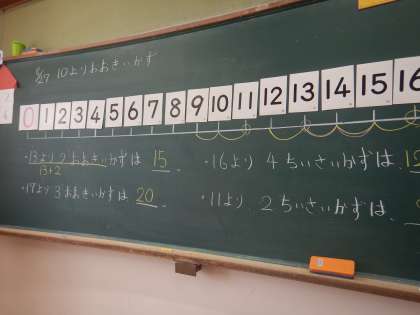 5/27 10よりおおきいかず
0 1 2 3 4 5 6 7 8 9 10 11 12 13 14 15 16
・13より2おおきいかずは 15
13+2
・17より3おおきいかずは 20
・16より 4ちいさいかずは、12
・11より 2ちいさいかずは、